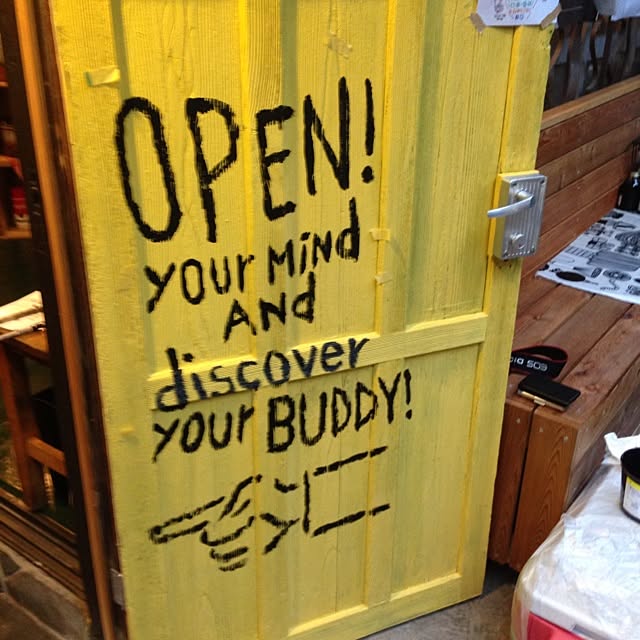 OPEN!
your MiNd
ANd
discover
your BUDDY!
EOS DIG